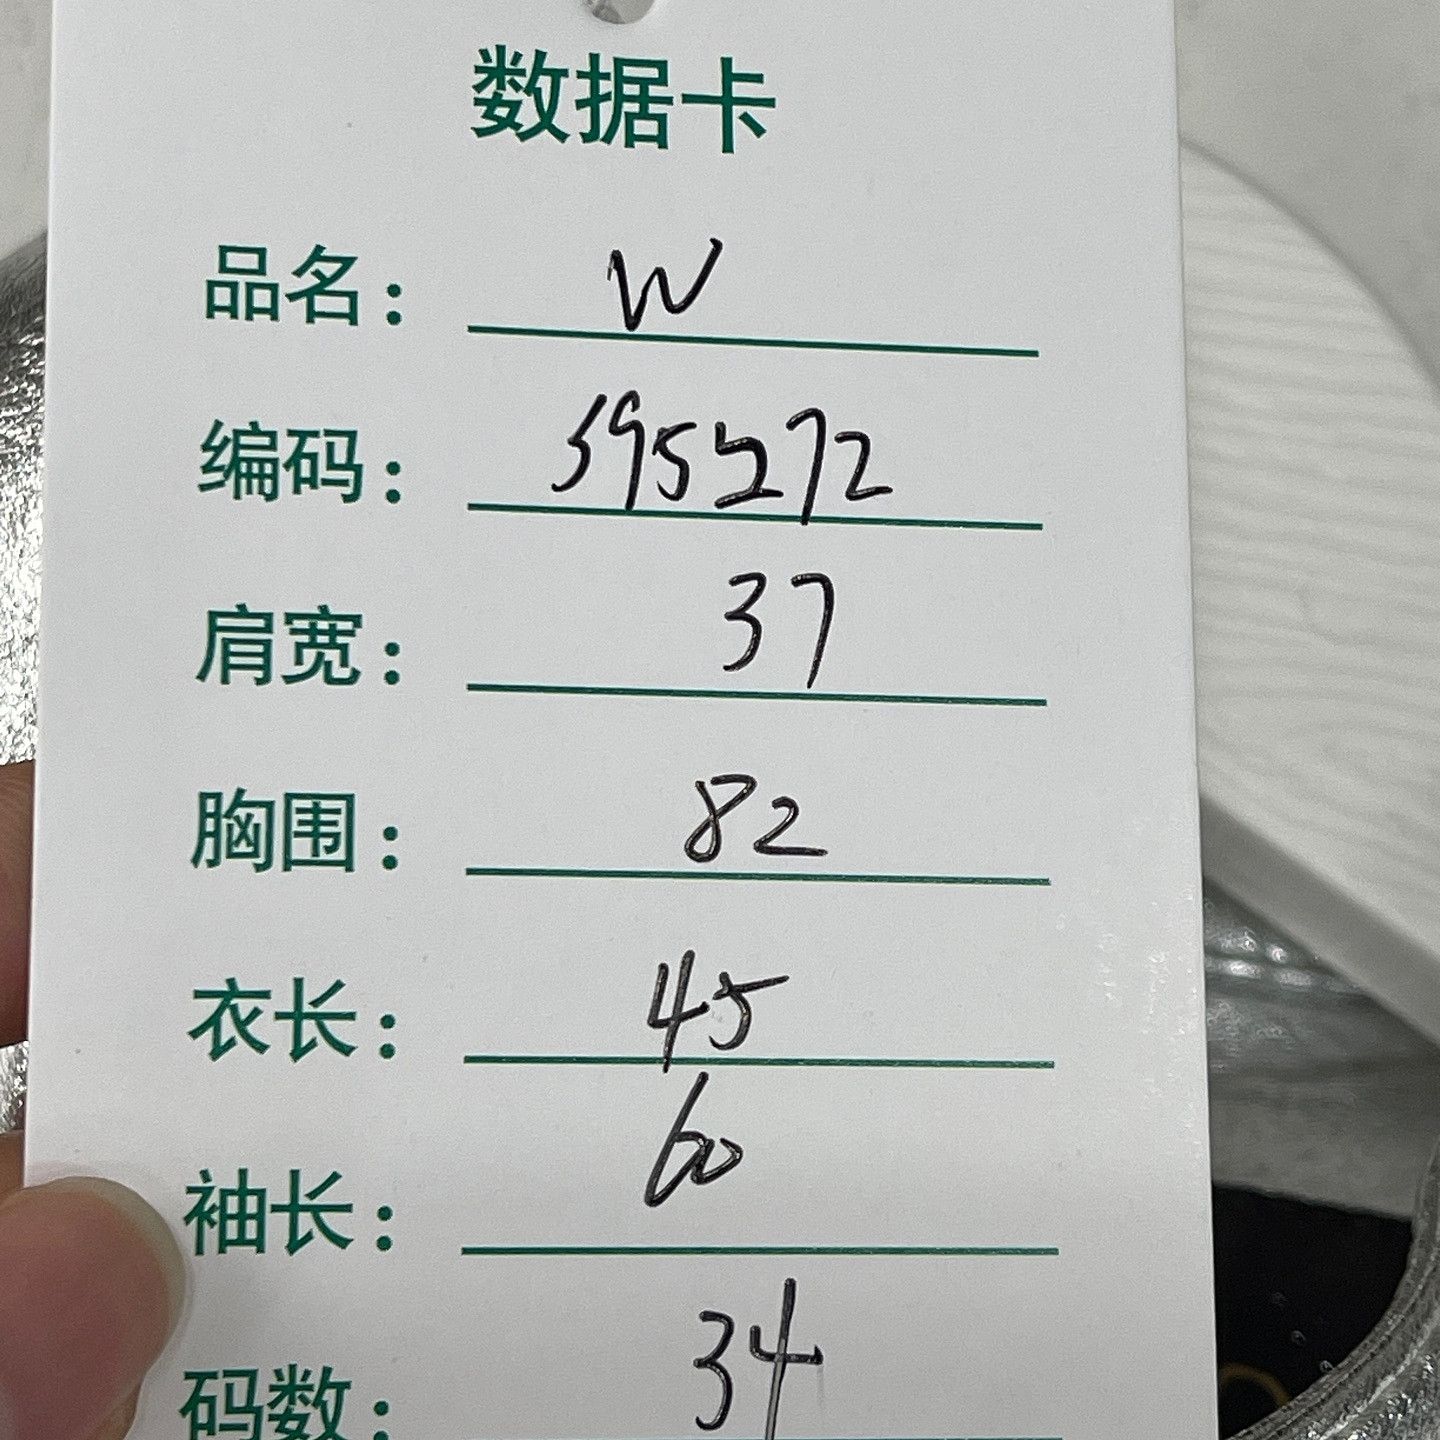 数据卡
品名: W
编码: 395272
肩宽: 37
胸围: 82
衣长: 45
袖长: 60
码数: 34